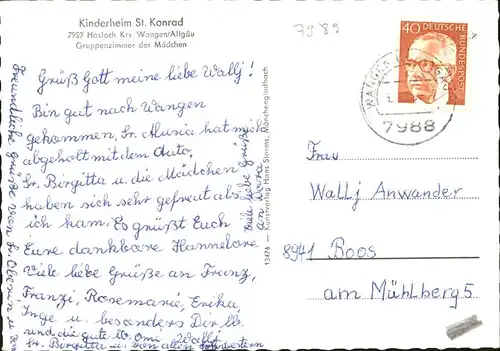 Kinderheim St. Konrad
7989
7932 Haslach Krs Wangen/Allgäu
Gruppenzimmer der Mädchen
40 DEUTSCHE BUNDESPOST
WANGEN
7988
Grüß Gott meine liebe Wally!
Bin gut nach Wangen
gekommen. Sr. Musia hat mich
abgeholt mit dem Auto.
Sr. Birgitta u. die Mädchen
haben sich sehr gefreut als
ich kam. Es grüßt Euch
Eure dankbare Hannelore
Viele liebe Grüße an Franz,
Franzi, Rosemarie, Erika,
Inge u. besonders Dir lb.
und die gute lb. Omi
Sr. Birgitta u. von allen Schwestern
Freundliche Grüße von Sr. Oberin u.
Viele liebe Grüße
an
13476 — Kunstverlag Hans Sturms, Mönchengladbach
Frau
Wally Anwander
8941 Boos
am Mühlberg 5